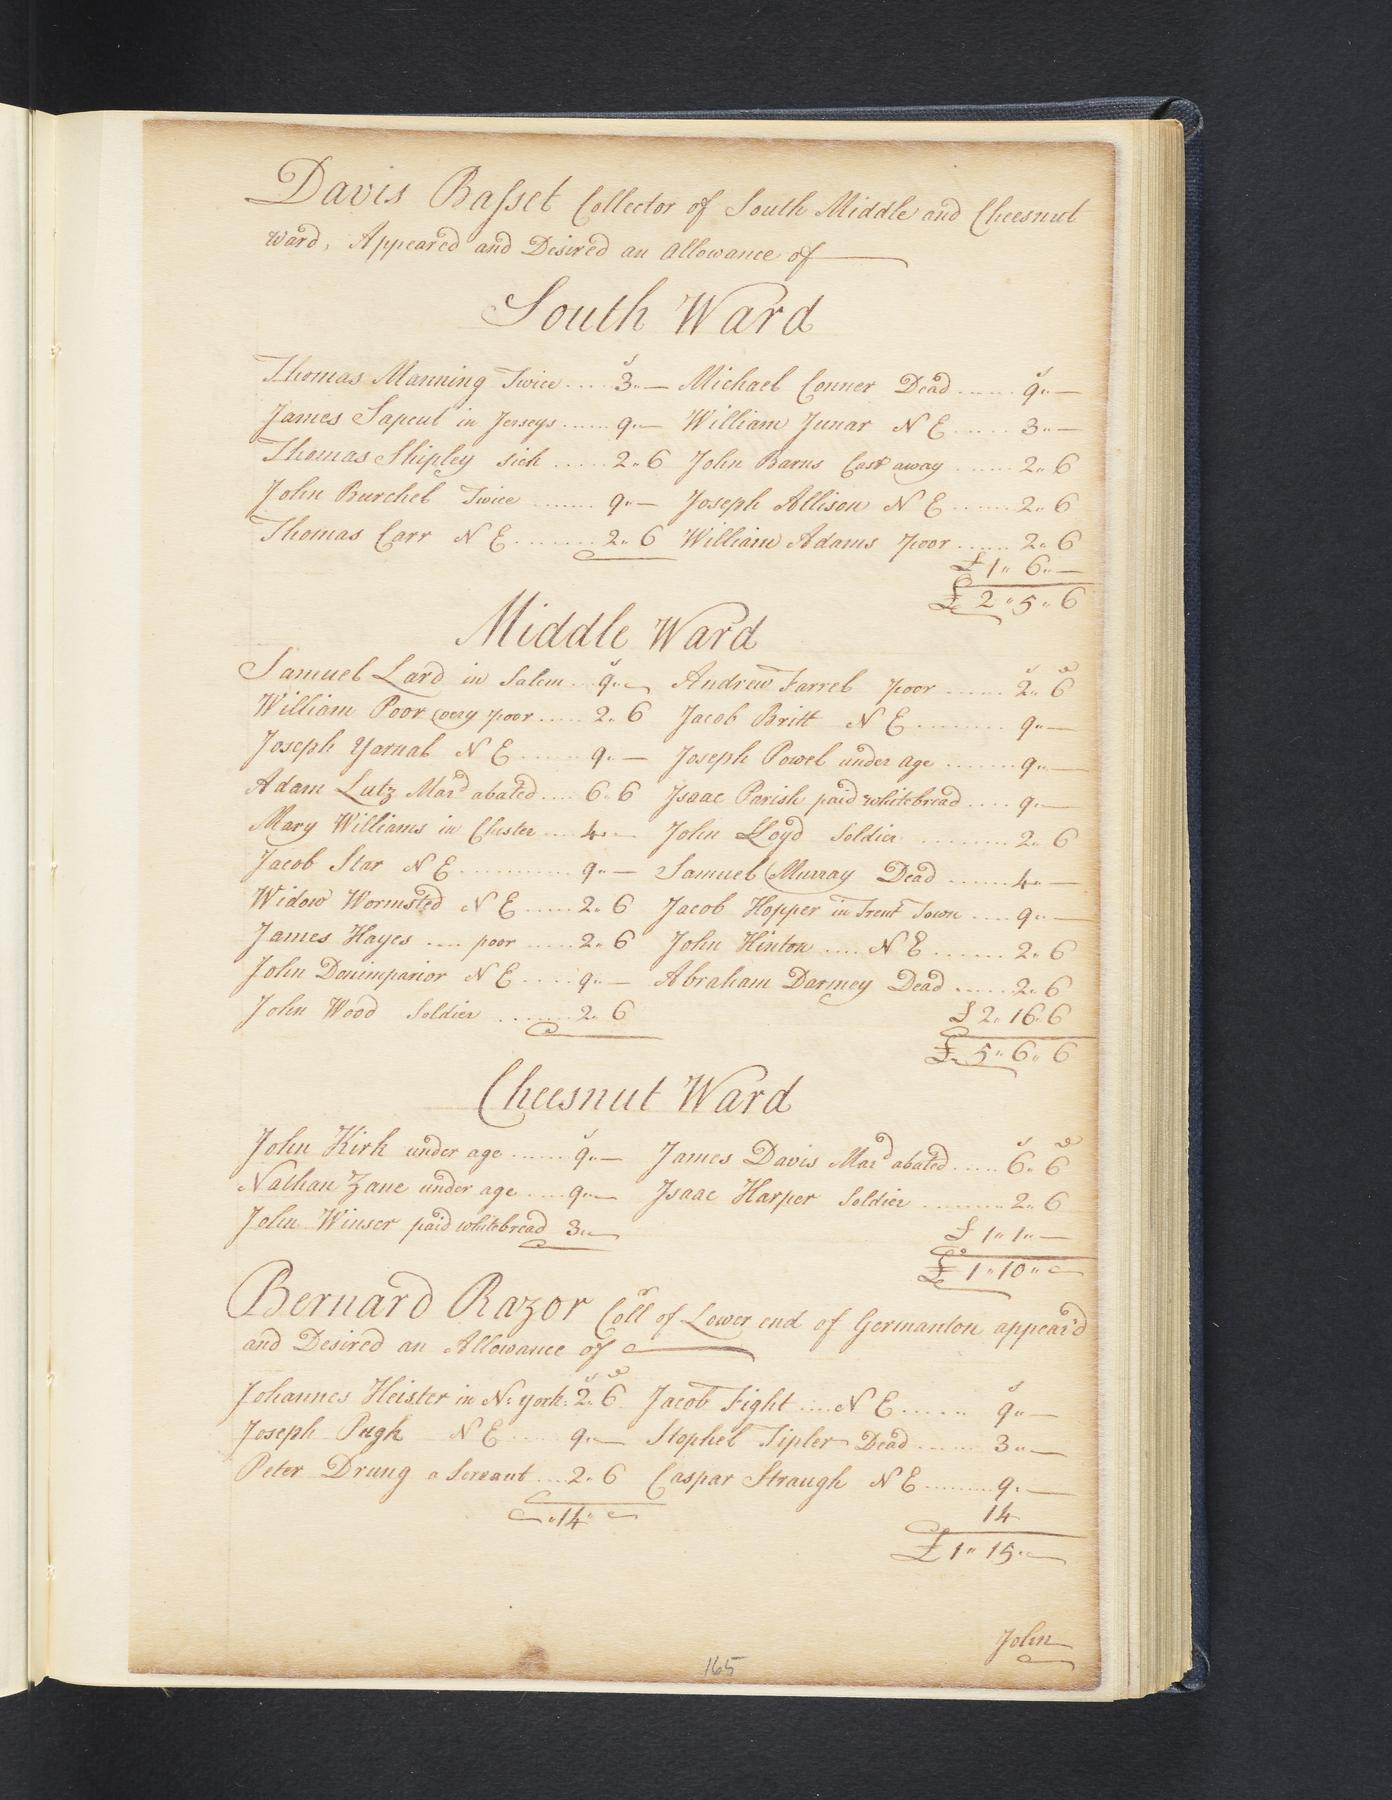 Davis Basset Collector of South Middle and Cheesnut
ward, Appeared and Desired an allowance of
South Ward
Thomas Manning Twice ..... 3„— Michael Conner Dead ...... 9„—
James Sapeut in Jerseys ...... 9„— William Junar N E ...... 3„—
Thomas Shipley sick ..... 2„6 John Barns Cast away ...... 2„6
John Burchel Twice ....... 9„— Joseph Allison N E ...... 2„6
Thomas Carr N E ........ 2„6 William Adams poor ...... 2„6
£1„6„—
£2„5„6
Middle Ward
Samuel Lard in Salem .. 9„— Andrew Farrel poor ...... 2„6
William Poor very poor ..... 2„6 Jacob Britt N E ........ 9„—
Joseph Yarnal N E ...... 9„— Joseph Powel under age ....... 9„—
Adam Lutz Mard abated .... 6„6 Isaac Parish paid whitebread .... 9„—
Mary Williams in Chester ... 4„— John Lloyd Soldier ........ 2„6
Jacob Star N E ........... 9„— Samuel Murray Dead ...... 4„—
Widow Wormsted N E ..... 2„6 Jacob Hopper in Trent Town .... 9„—
James Hayes .... poor ..... 2„6 John Hinton .... N E ....... 2„6
John Denimparior N E .... 9„— Abraham Darmey Dead ..... 2„6
John Wood Soldier ....... 2„6
£2„16„6
£5„6„6
Cheesnut Ward
John Kirk under age ...... 9„— James Davis Mard abated ..... 6„6
Nathan Zane under age .... 9„— Isaac Harper Soldier ........ 2„6
John Winser paid whitebread 3„—
£1„1„—
£1„10„—
Bernard Razor Coll of Lower end of Germanton appear'd
and Desired an Allowance of
Johannes Heister in N: york: 2„6 Jacob Fight .... N E ...... 9„—
Joseph Pugh N E ..... 9„— Stophel Tipler Dead ...... 3„—
Peter Drung a Servant ... 2„6 Caspar Straugh N E ........ 9„—
„14„— 14
£1„15„—
John
165